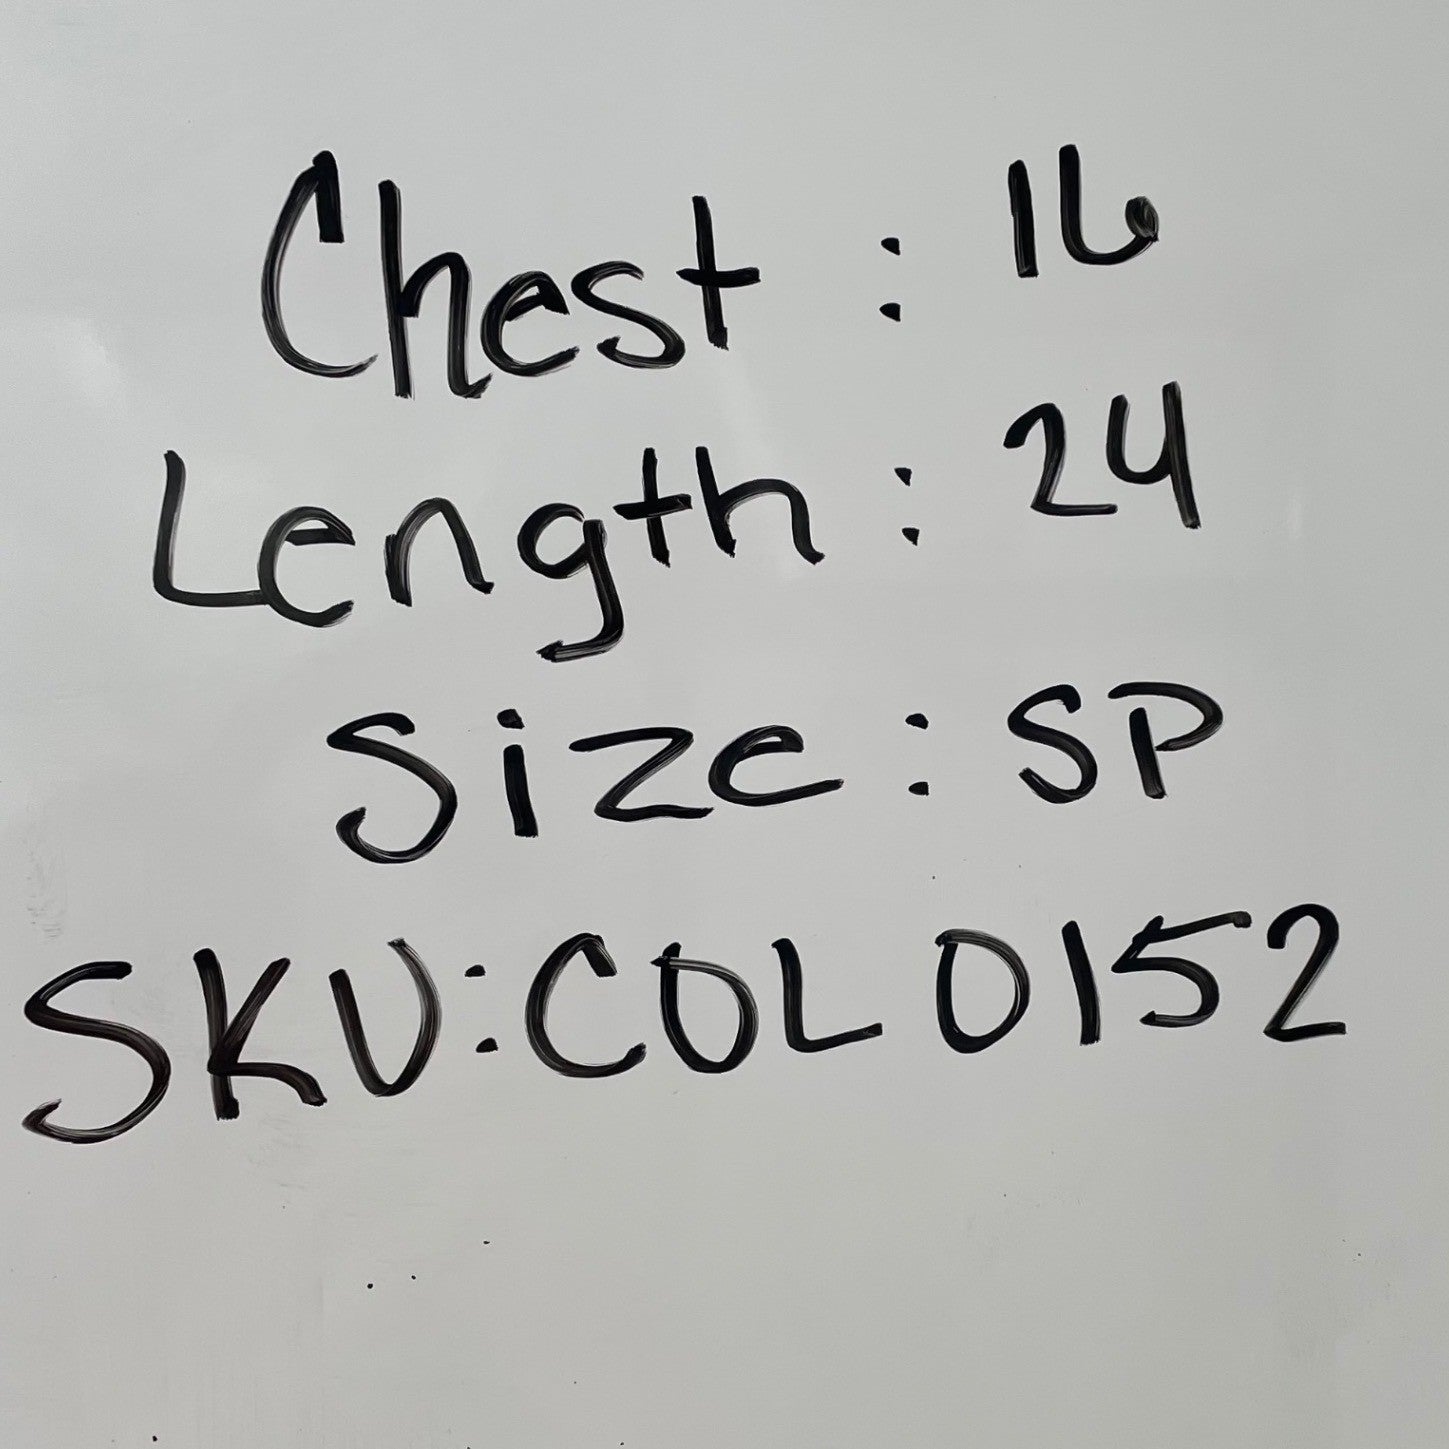 Chest : 16
Length : 24
Size : SP
SKU: COL 0152